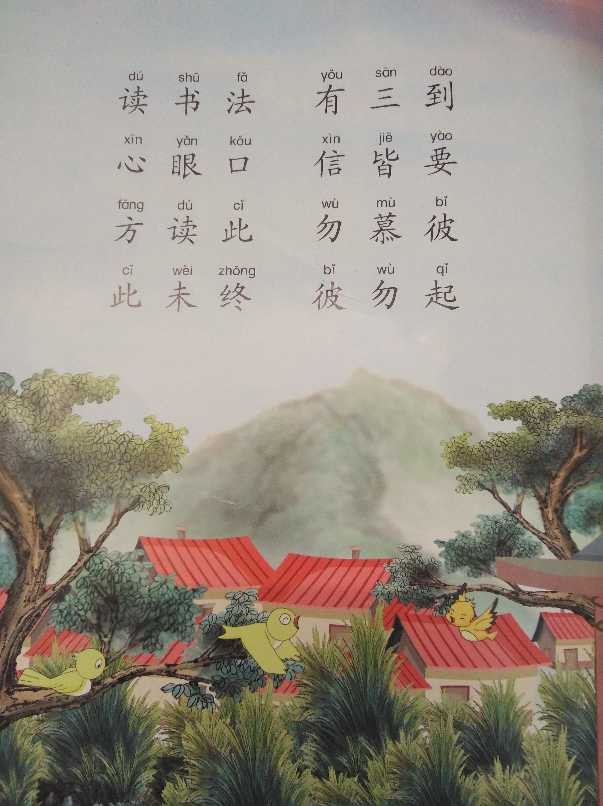 dú shū fǎ yǒu sān dào
读书法 有三到
xīn yǎn kǒu xìn jiē yào
心眼口 信皆要
fāng dú cǐ wù mù bǐ
方读此 勿慕彼
cǐ wèi zhōng bǐ wù qǐ
此未终 彼勿起